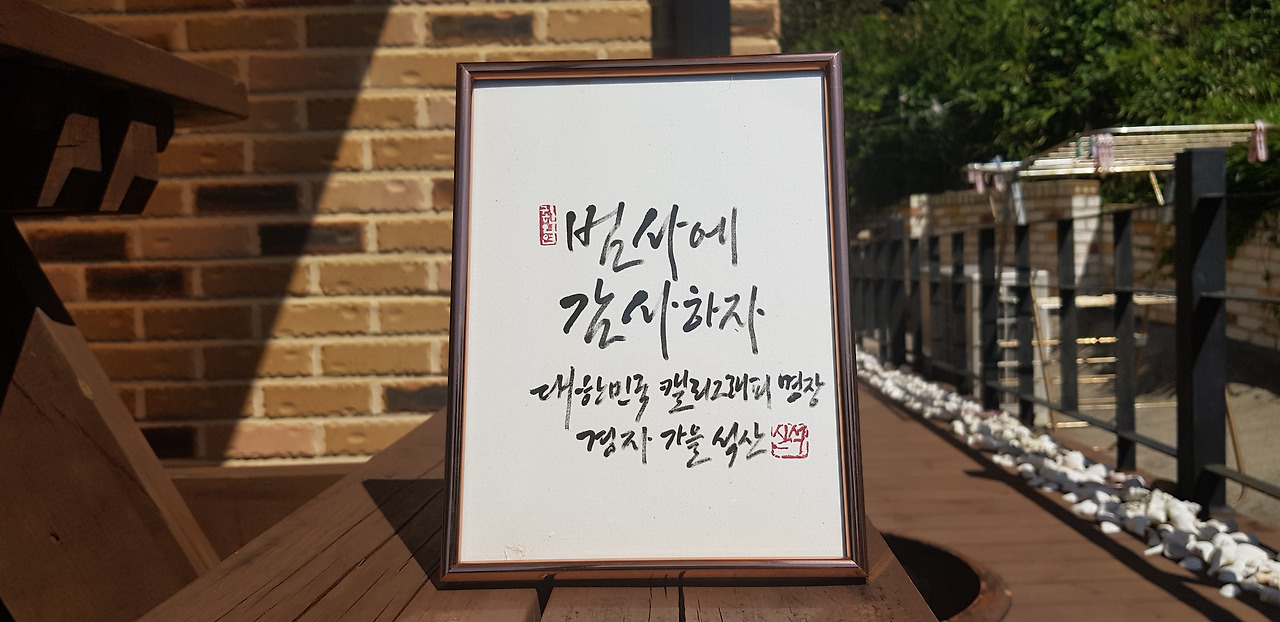 범사에
감사하자
대한민국 캘리그래피 명장
경자 가을 석산